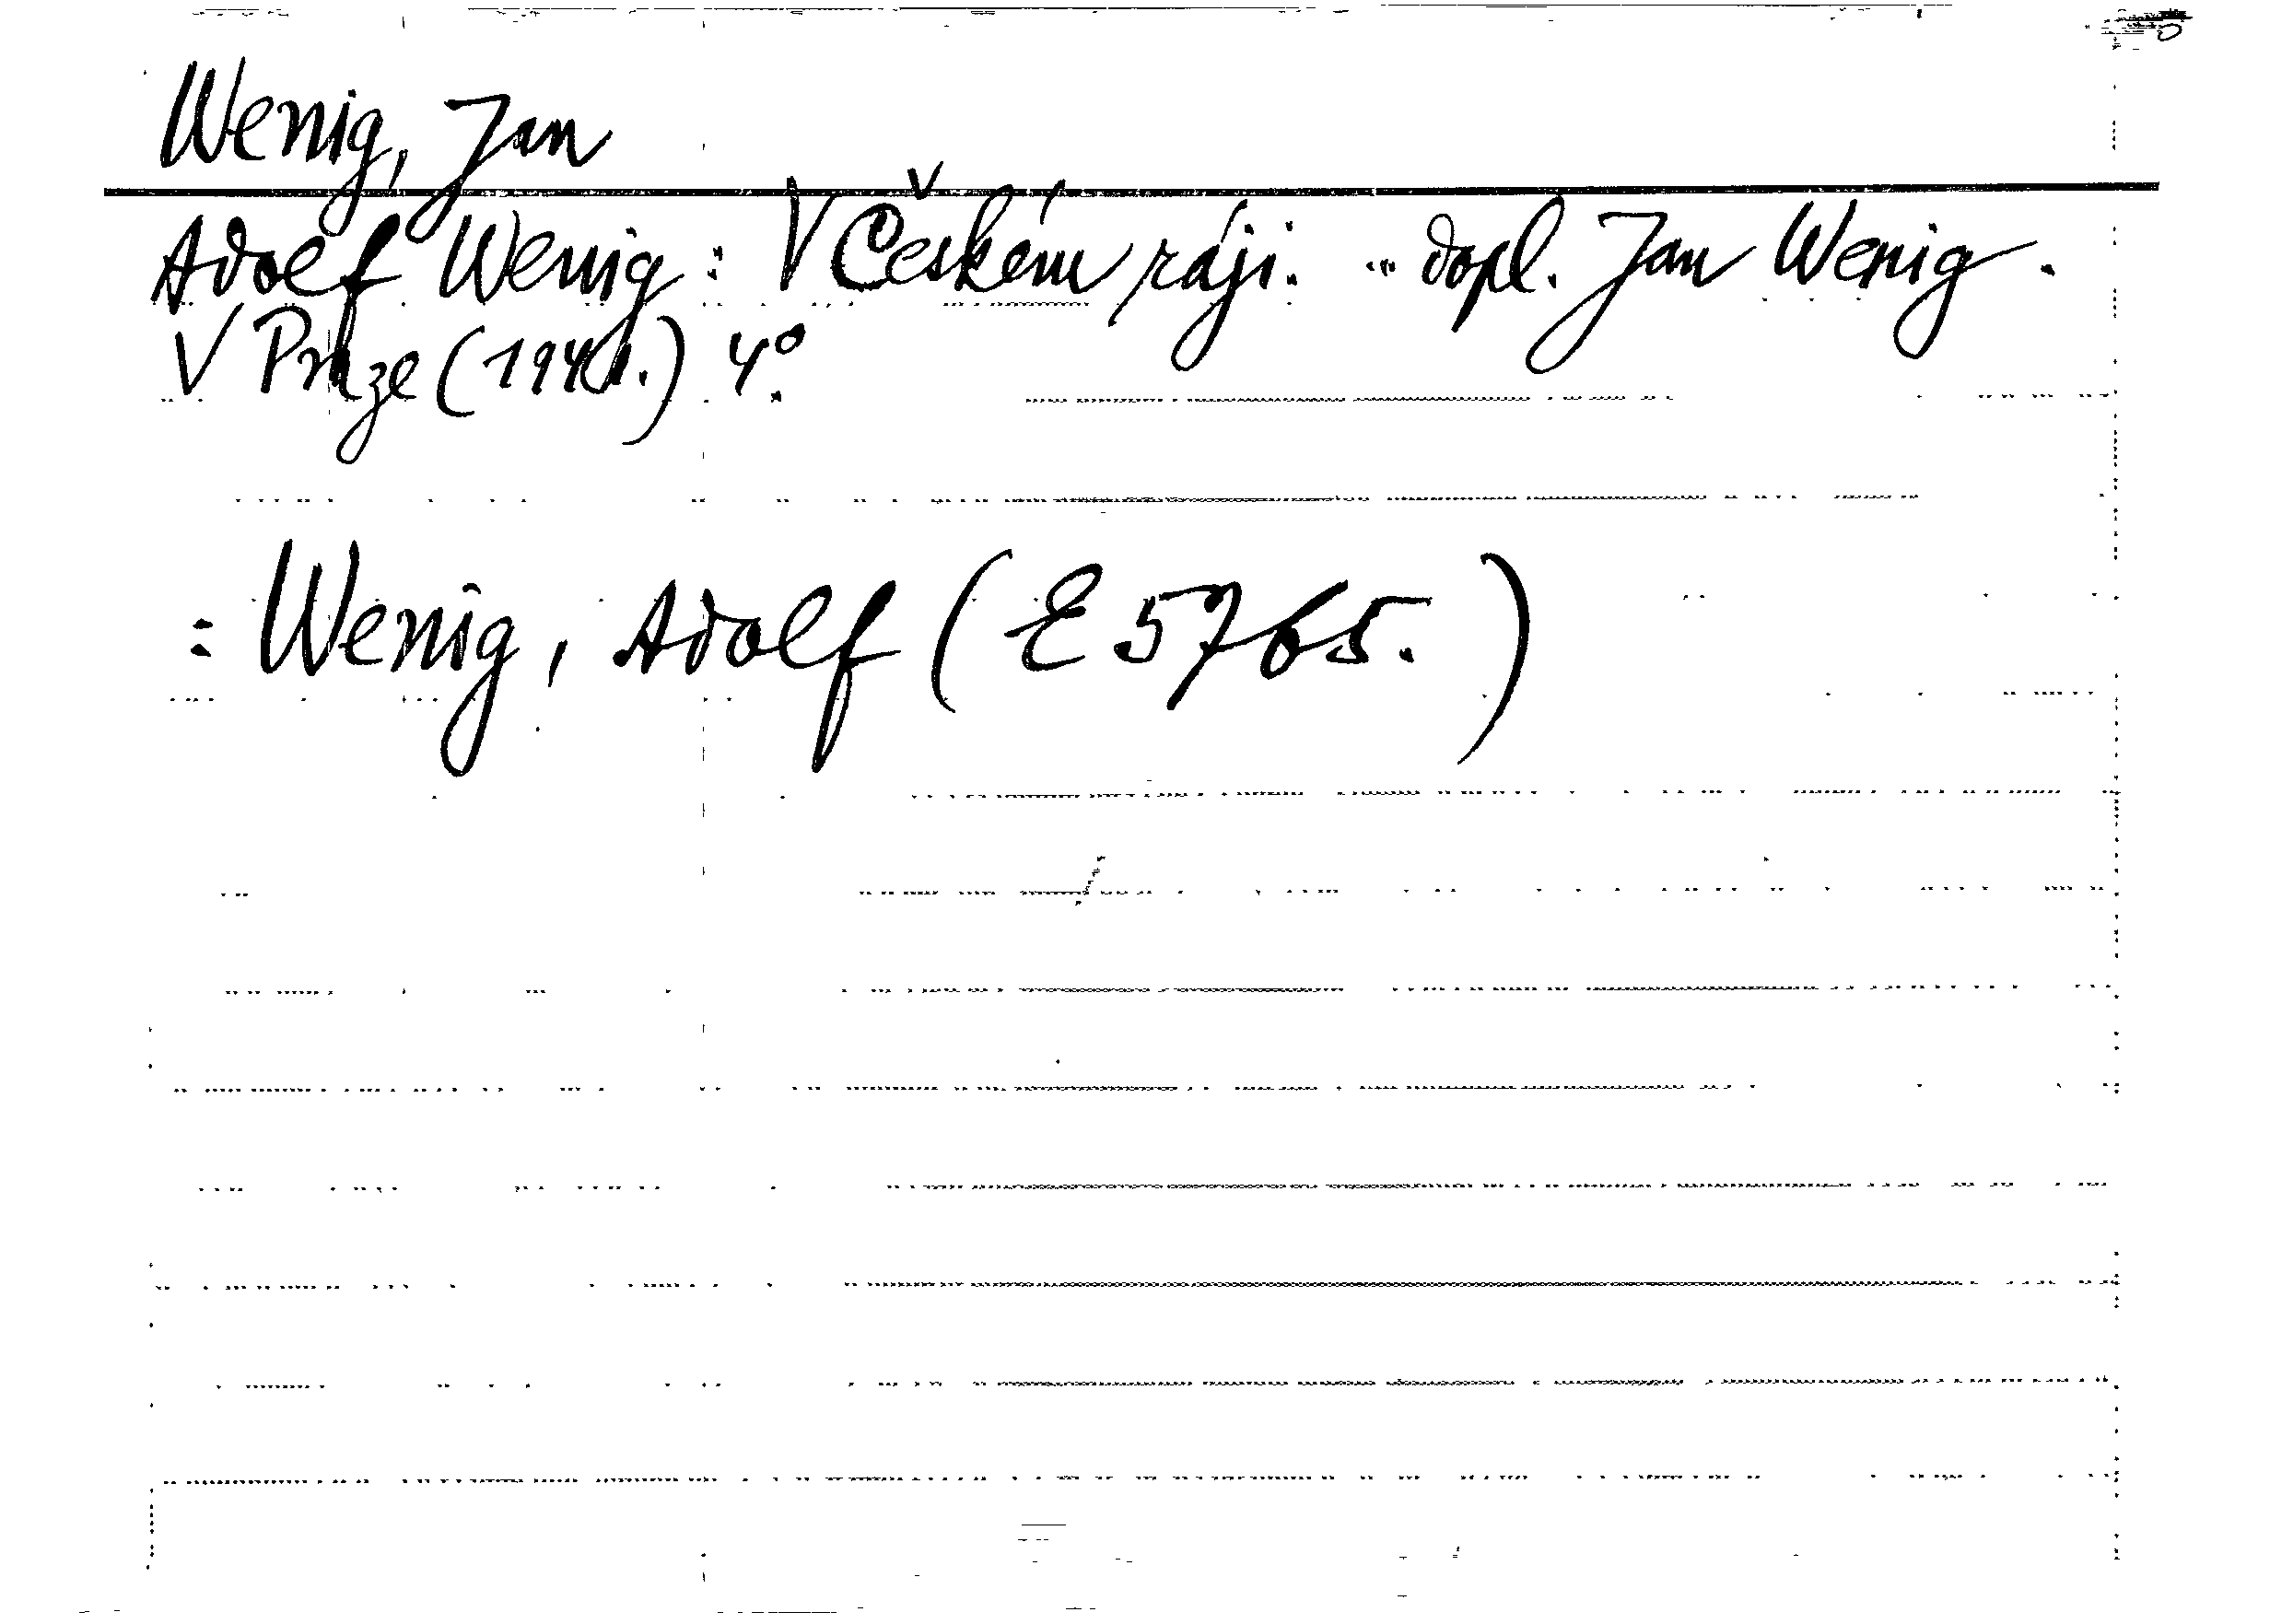 Wenig, Jan
Adolf Wenig: V Českém ráji. ... dopl. Jan Wenig.
V Praze (1941.) 4°.
= Wenig, Adolf (E 5765.)